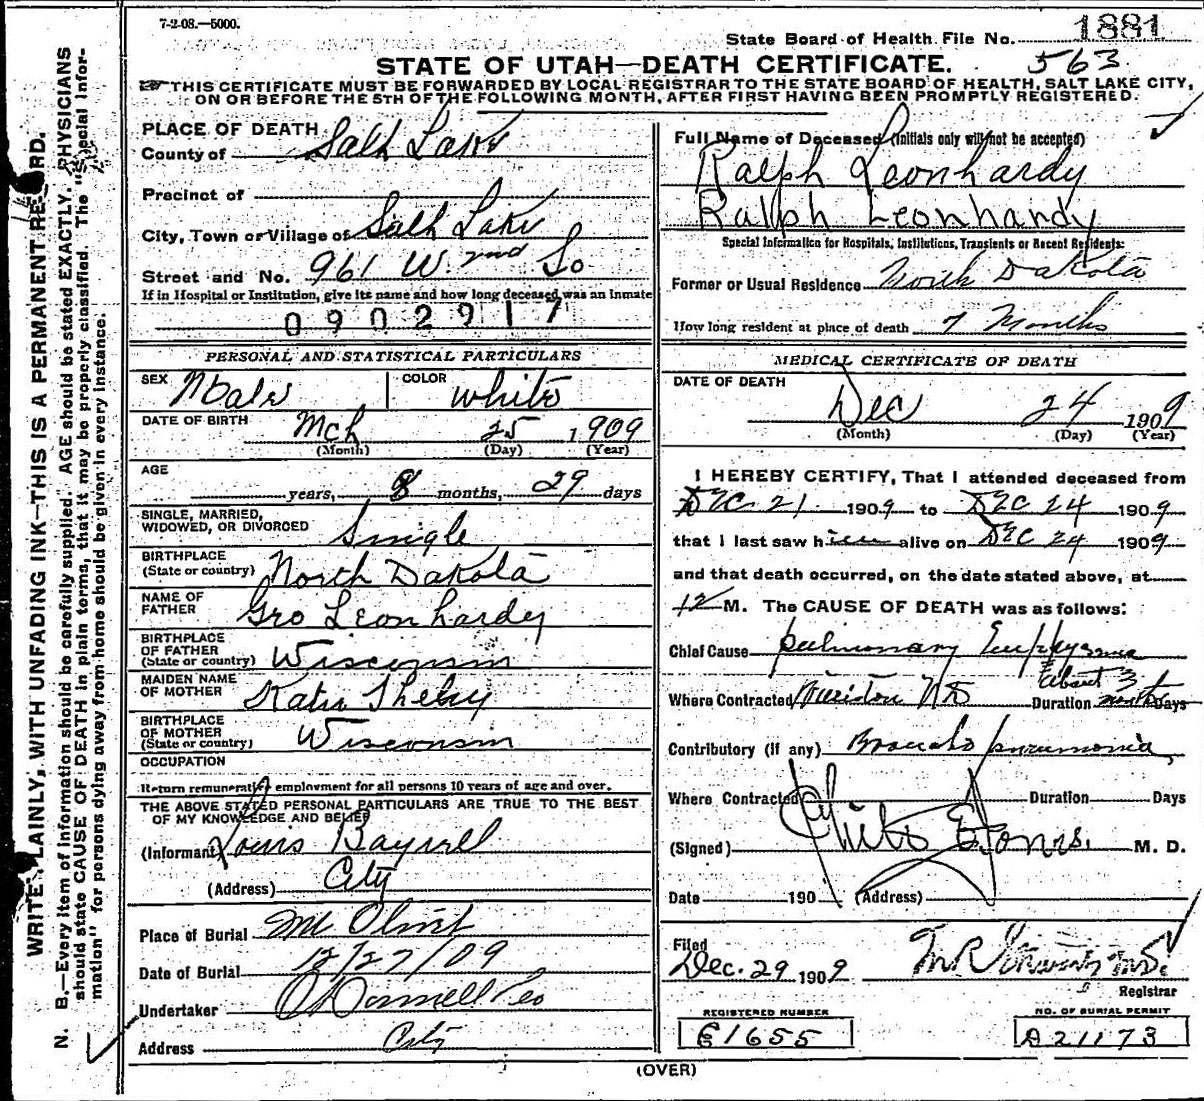 7-2-08.—5000.
1881
State Board of Health File No.
563
STATE OF UTAH—DEATH CERTIFICATE.
THIS CERTIFICATE MUST BE FORWARDED BY LOCAL REGISTRAR TO THE STATE BOARD OF HEALTH, SALT LAKE CITY,
ON OR BEFORE THE 5TH OF THE FOLLOWING MONTH, AFTER FIRST HAVING BEEN PROMPTLY REGISTERED.
WRITE PLAINLY, WITH UNFADING INK—THIS IS A PERMANENT RECORD.
N. B.—Every item of information should be carefully supplied. AGE should be stated EXACTLY. PHYSICIANS
should state CAUSE OF DEATH in plain terms, that it may be properly classified. The "Special Infor-
mation" for persons dying away from home should be given in every instance.
PLACE OF DEATH
County of Salt Lake
Precinct of
City, Town or Village of Salt Lake
Street and No. 961 W. 2nd So
If in Hospital or Institution, give its name and how long deceased was an Inmate
0902917
PERSONAL AND STATISTICAL PARTICULARS
SEX Male COLOR White
DATE OF BIRTH Mch 25 1909
(Month) (Day) (Year)
AGE
years, 8 months, 29 days
SINGLE, MARRIED,
WIDOWED, OR DIVORCED Single
BIRTHPLACE
(State or country) North Dakota
NAME OF
FATHER Geo Leonhardy
BIRTHPLACE
OF FATHER
(State or country) Wisconsin
MAIDEN NAME
OF MOTHER Katie
BIRTHPLACE
OF MOTHER
(State or country) Wisconsin
OCCUPATION
Return remunerative employment for all persons 10 years of age and over.
THE ABOVE STATED PERSONAL PARTICULARS ARE TRUE TO THE BEST
OF MY KNOWLEDGE AND BELIEF
(Informant) Louis
(Address) City
Place of Burial Mt Olivet
Date of Burial 12/27/09
Undertaker O'Donnell
Address City
Full Name of Deceased (Initials only will not be accepted)
Ralph Leonhardy
Ralph Leonhardy
Special Information for Hospitals, Institutions, Transients or Recent Residents:
Former or Usual Residence North Dakota
How long resident at place of death 7 Months
MEDICAL CERTIFICATE OF DEATH
DATE OF DEATH
Dec 24 1909
(Month) (Day) (Year)
I HEREBY CERTIFY, That I attended deceased from
Dec 21 1909 to Dec 24 1909
that I last saw him alive on Dec 24 1909
and that death occurred, on the date stated above, at
12 M. The CAUSE OF DEATH was as follows:
Chief Cause pulmonary Emphysema
about 3
Where Contracted ND Duration months Days
Contributory (if any) Broncho pneumonia
Where Contracted Duration Days
(Signed) M. D.
Date 190 (Address)
Filed
Dec. 29 1909
Registrar
REGISTERED NUMBER NO. OF BURIAL PERMIT
E1655 A21173
(OVER)